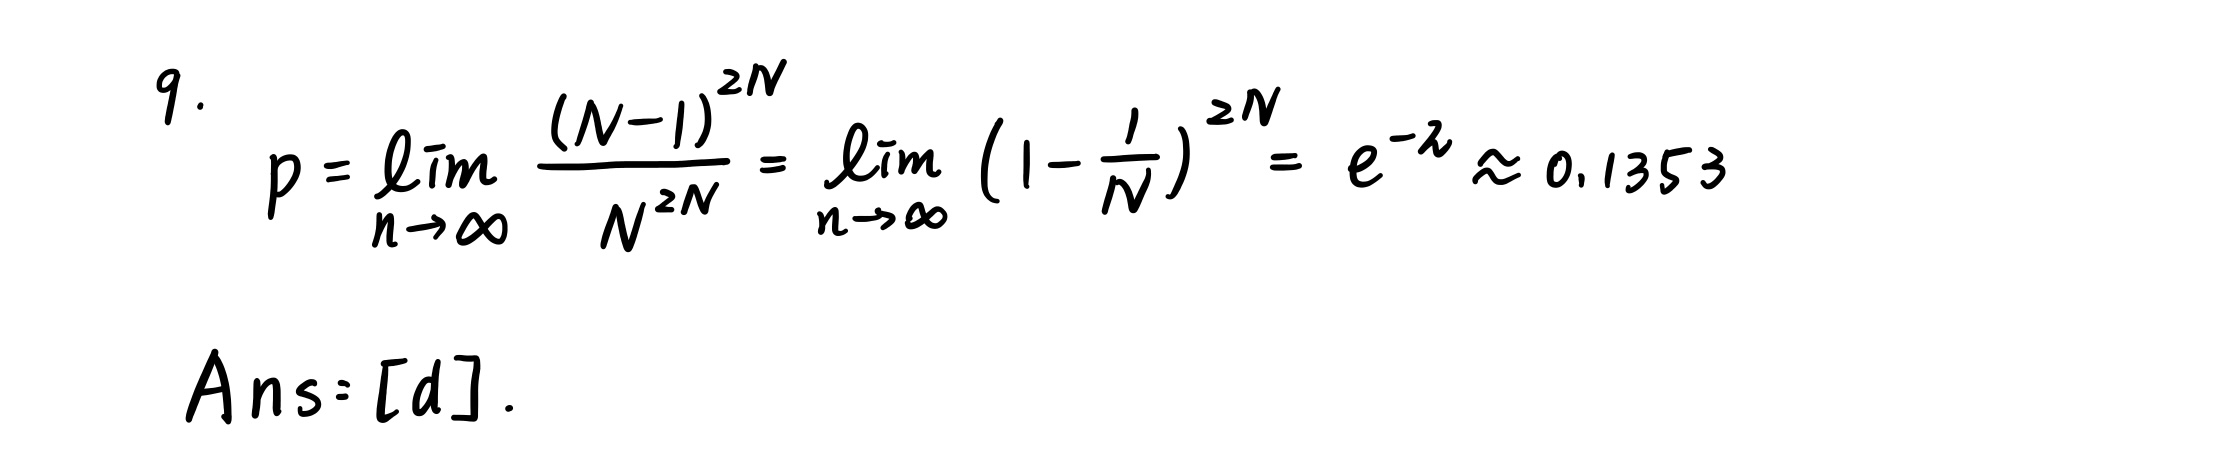 9.
p = lim_{n→∞} (N-1)^{2N} / N^{2N} = lim_{n→∞} (1 - 1/N)^{2N} = e^{-2} ≈ 0.1353
Ans=[d].